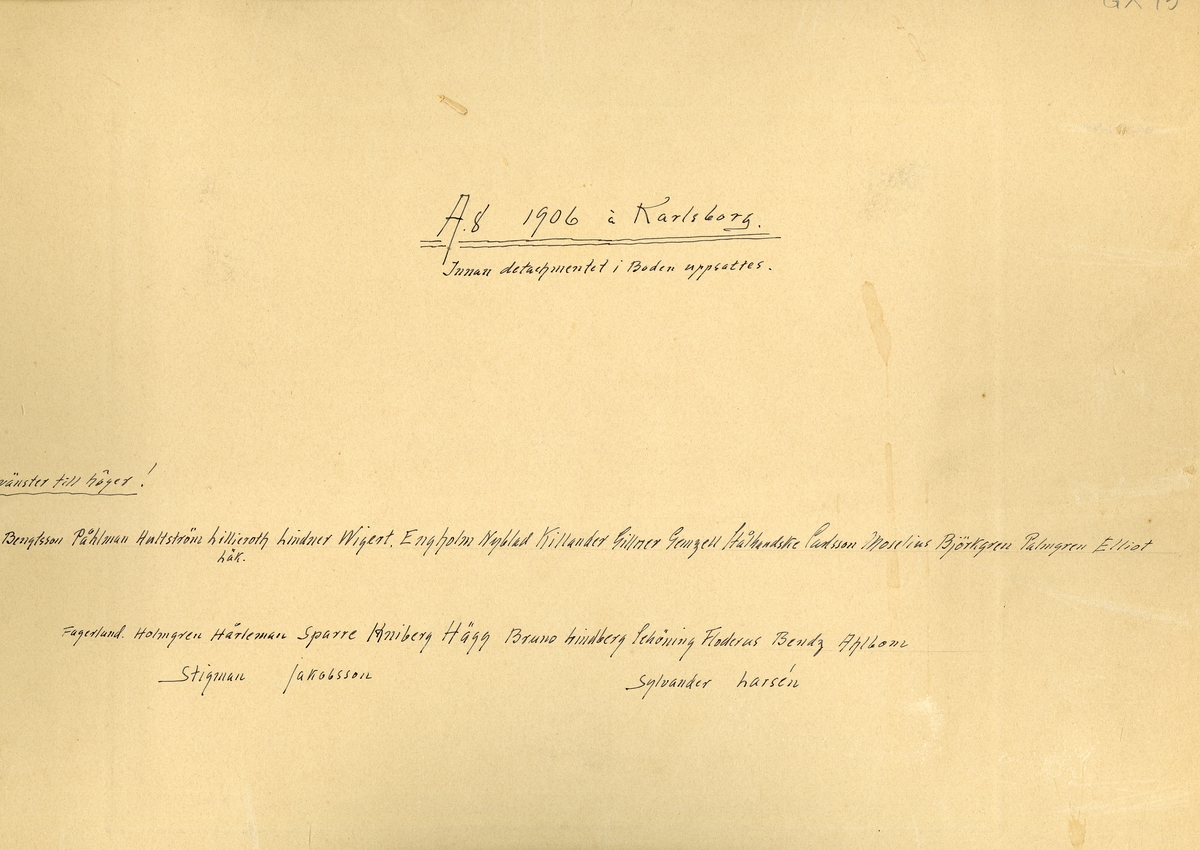 GX 13
A.8 1906 à Karlsborg.
Innan detachmentet i Boden uppsattes.
vänster till höger!
Bengtsson Påhlman Hultström Lillieroth Lindner Wigert. Engholm Nyblad Killander Gillner Gemzell Stålhandske Carlsson Moselius Björkgren Palmgren Elliot
Läk.
Fagerlund. Holmgren Hårleman Sparre Kniberg Hägg Bruno Lindberg Schöning Floderus Bendz Ahlbom
Stigman Jakobsson Sylvander Larsén